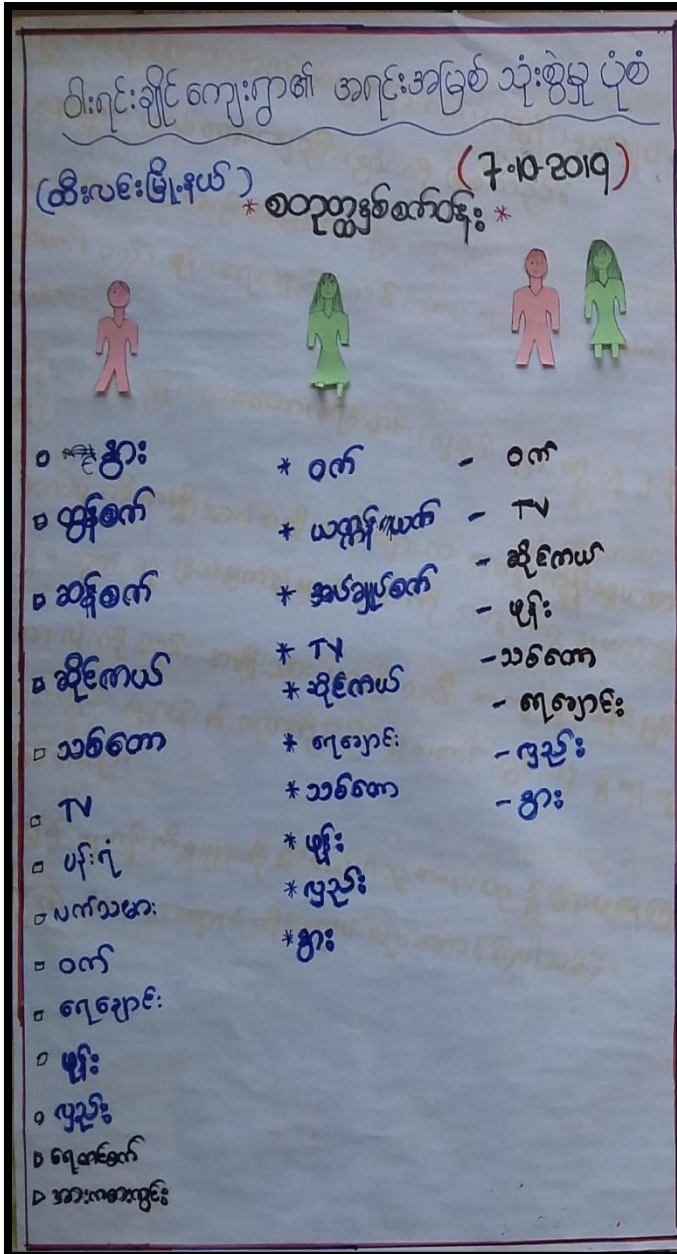 ဝါးရင်းချိုင်ကျေးရွာ၏ အရင်းအမြစ် သုံးစွဲမှု ပုံစံ
(ထီးလင်းမြို့နယ်)
(7-10-2019)
* စတုတ္ထနှစ်စက်ဝန်း *
နွား
ထွန်စက်
ဆန်စက်
ဆိုင်ကယ်
သစ်တော
TV
ပန်းရံ
လက်သမား
ဝက်
ရေချောင်း
ဖုန်း
လှည်း
ရေတင်စက်
အားကစားကွင်း
* ဝက်
* ယက္ကန်းယက်
* အပ်ချုပ်စက်
* TV
* ဆိုင်ကယ်
* ရေချောင်း
* သစ်တော
* ဖုန်း
* လှည်း
* နွား
- ဝက်
- TV
- ဆိုင်ကယ်
- ဖုန်း
- သစ်တော
- ရေချောင်း
- လှည်း
- နွား